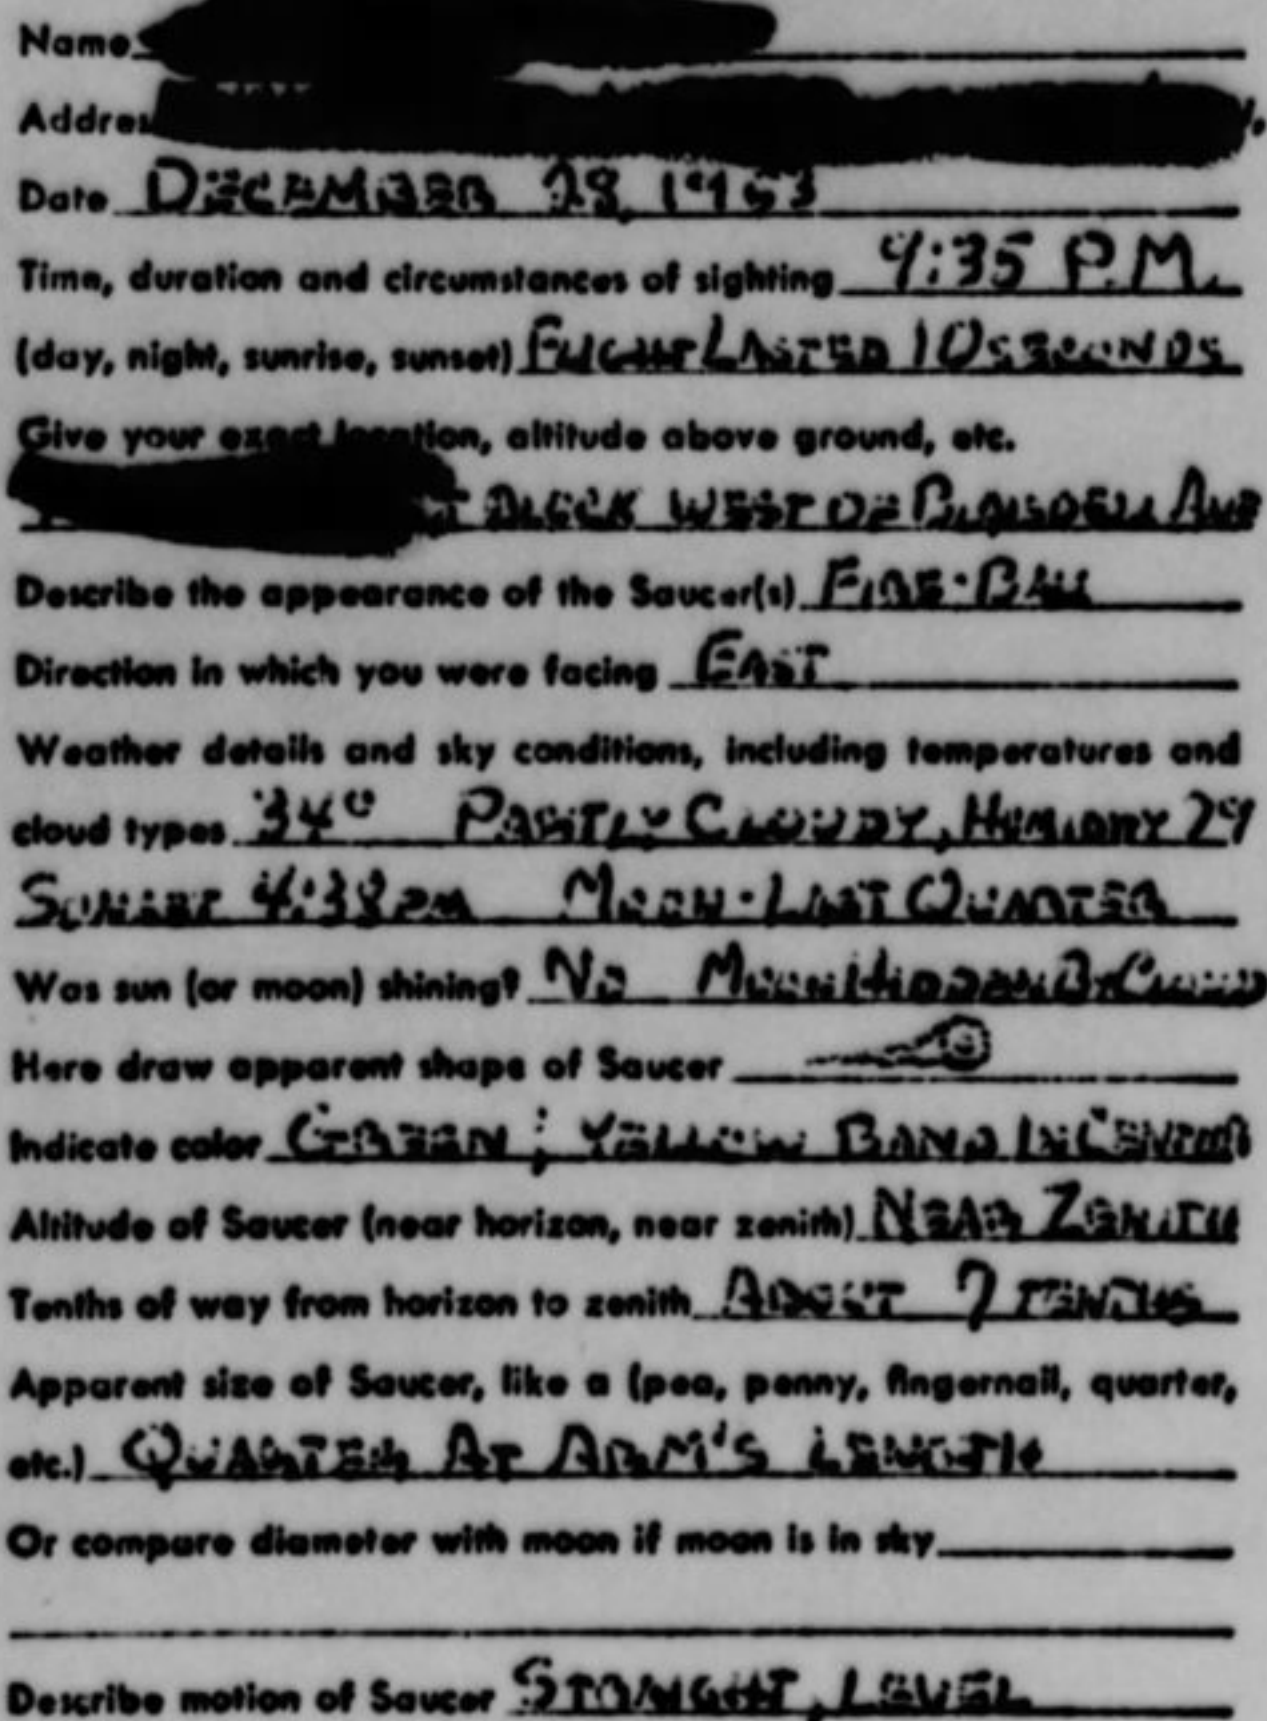 Name
Addres
Date DECEMBER 28, 1953
Time, duration and circumstances of sighting 9:35 P.M.
(day, night, sunrise, sunset) FLIGHT LASTED 10 SECONDS
Give your exact location, altitude above ground, etc.
BLOCK WEST OF BLAISDELL AVE
Describe the appearance of the Saucer(s) FIRE-BALL
Direction in which you were facing EAST
Weather details and sky conditions, including temperatures and
cloud types 34° PARTLY CLOUDY, HUMIDITY 29
SUNSET 4:38 PM MOON-LAST QUARTER
Was sun (or moon) shining? NO MOON HIDDEN BY CLOUD
Here draw apparent shape of Saucer
Indicate color GREEN; YELLOW BAND IN CENTER
Altitude of Saucer (near horizon, near zenith) NEAR ZENITH
Tenths of way from horizon to zenith ABOUT 7 TENTHS
Apparent size of Saucer, like a (pea, penny, fingernail, quarter,
etc.) QUARTER AT ARM'S LENGTH
Or compare diameter with moon if moon is in sky
Describe motion of Saucer STRAIGHT, LEVEL